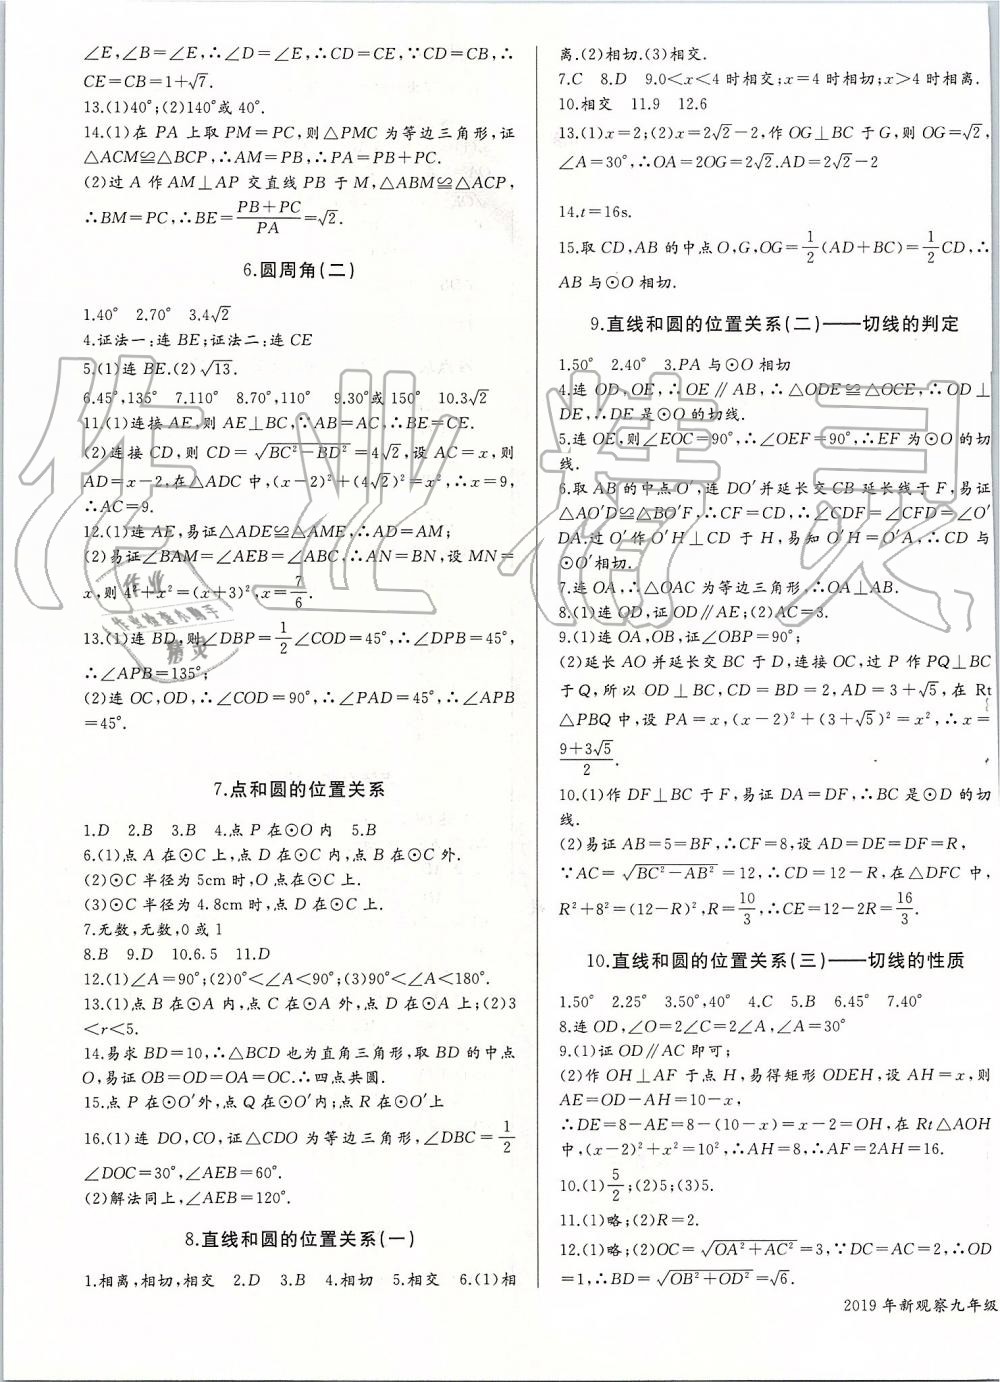 ∠E,∠B=∠E,∴∠D=∠E,∴CD=CE,∵CD=CB,∴
CE=CB=1+√7.
13.(1)40°;(2)140°或40°.
14.(1)在PA上取PM=PC,则△PMC为等边三角形,证
△ACM≌△BCP,∴AM=PB,∴PA=PB+PC.
(2)过A作AM⊥AP交直线PB于M,△ABM≌△ACP,
∴BM=PC,∴BE=(PB+PC)/PA=√2.
6.圆周角(二)
1.40° 2.70° 3.4√2
4.证法一:连BE;证法二:连CE
5.(1)连BE.(2)√13.
6.45°,135° 7.110° 8.70°,110° 9.30°或150° 10.3√2
11.(1)连接AE,则AE⊥BC,∵AB=AC,∴BE=CE.
(2)连接CD,则CD=√(BC²-BD²)=4√2,设AC=x,则
AD=x-2,在△ADC中,(x-2)²+(4√2)²=x²,∴x=9,
∴AC=9.
12.(1)连AE,易证△ADE≌△AME,∴AD=AM;
(2)易证∠BAM=∠AEB=∠ABC,∴AN=BN,设MN=
x,则4²+x²=(x+3)²,x=7/6.
13.(1)连BD,则∠DBP=1/2∠COD=45°,∴∠DPB=45°,
∴∠APB=135°;
(2)连OC,OD,∴∠COD=90°,∴∠PAD=45°,∴∠APB
=45°.
7.点和圆的位置关系
1.D 2.B 3.B 4.点P在⊙O内 5.B
6.(1)点A在⊙C上,点D在⊙C内,点B在⊙C外.
(2)⊙C半径为5cm时,O点在⊙C上.
(3)⊙C半径为4.8cm时,点D在⊙C上.
7.无数,无数,0或1
8.B 9.D 10.6.5 11.D
12.(1)∠A=90°;(2)0°<∠A<90°;(3)90°<∠A<180°.
13.(1)点B在⊙A内,点C在⊙A外,点D在⊙A上;(2)3
<r<5.
14.易求BD=10,∴△BCD也为直角三角形,取BD的中点
O,易证OB=OD=OA=OC.∴四点共圆.
15.点P在⊙O′外,点Q在⊙O′内;点R在⊙O′上
16.(1)连DO,CO,证△CDO为等边三角形,∠DBC=1/2
∠DOC=30°,∠AEB=60°.
(2)解法同上,∠AEB=120°.
8.直线和圆的位置关系(一)
1.相离,相切,相交 2.D 3.B 4.相切 5.相交 6.(1)相
离.(2)相切.(3)相交.
7.C 8.D 9.0<x<4时相交;x=4时相切;x>4时相离.
10.相交 11.9 12.6
13.(1)x=2;(2)x=2√2-2,作OG⊥BC于G,则OG=√2,
∠A=30°,∴OA=2OG=2√2.AD=2√2-2
14.t=16s.
15.取CD,AB的中点O,G,OG=1/2(AD+BC)=1/2CD,∴
AB与⊙O相切.
9.直线和圆的位置关系(二)——切线的判定
1.50° 2.40° 3.PA与⊙O相切
4.连OD,OE,∴OE∥AB,∴△ODE≌△OCE,∴OD⊥
DE,∴DE是⊙O的切线.
5.连OE,则∠EOC=90°,∴∠OEF=90°,∴EF为⊙O的切
线.
6.取AB的中点O′,连DO′并延长交CB延长线于F,易证
△AO′D≌△BO′F,∴CF=CD,∴∠CDF=∠CFD=∠O′
DA.过O′作O′H⊥CD于H,易知O′H=O′A,∴CD与
⊙O′相切.
7.连OA,∴△OAC为等边三角形,∴OA⊥AB.
8.(1)连OD,证OD∥AE;(2)AC=3.
9.(1)连OA,OB,证∠OBP=90°;
(2)延长AO并延长交BC于D,连接OC,过P作PQ⊥BC
于Q,所以OD⊥BC,CD=BD=2,AD=3+√5,在Rt
△PBQ中,设PA=x,(x-2)²+(3+√5)²=x²,∴x=
(9+3√5)/2.
10.(1)作DF⊥BC于F,易证DA=DF,∴BC是⊙D的切
线.
(2)易证AB=5=BF,∴CF=8,设AD=DE=DF=R,
∵AC=√(BC²-AB²)=12,∴CD=12-R,在△DFC中,
R²+8²=(12-R)²,R=10/3,∴CE=12-2R=16/3.
10.直线和圆的位置关系(三)——切线的性质
1.50° 2.25° 3.50°,40° 4.C 5.B 6.45° 7.40°
8.连OD,∠O=2∠C=2∠A,∠A=30°
9.(1)证OD∥AC即可;
(2)作OH⊥AF于点H,易得矩形ODEH,设AH=x,则
AE=OD-AH=10-x,
∴DE=8-AE=8-(10-x)=x-2=OH,在Rt△AOH
中,(x-2)²+x²=10²,∴AH=8,∴AF=2AH=16.
10.(1)5/2;(2)5;(3)5.
11.(1)略;(2)R=2.
12.(1)略;(2)OC=√(OA²+AC²)=3,∵DC=AC=2,∴OD
=1,∴BD=√(OB²+OD²)=√6.
2019年新观察九年级
作业精灵
作业
作业检查小助手
精灵